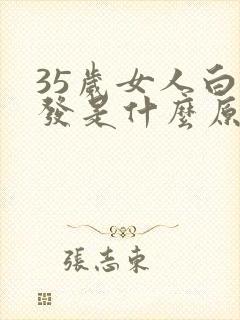 35歲女人白
發是什麼原
張志東